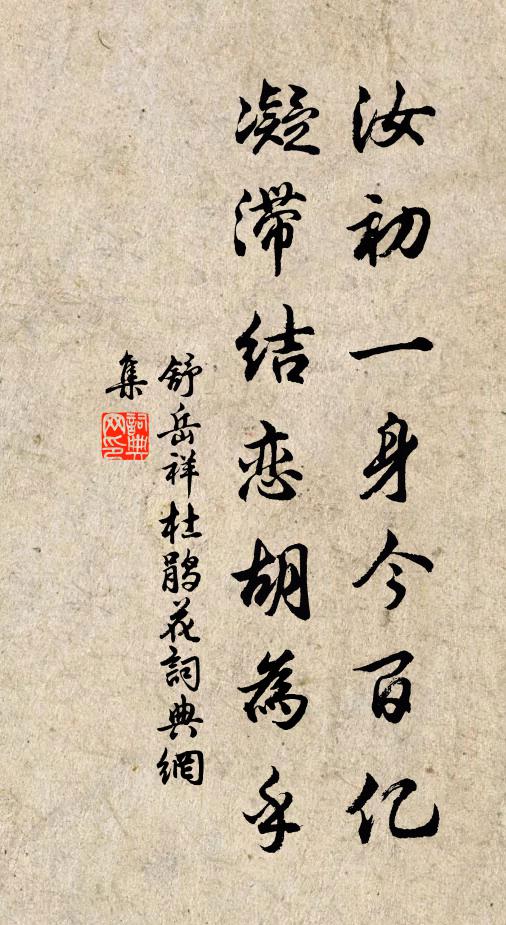 汝初一身今百亿
凝滞结恋胡為乎
舒岳祥杜鹃花詞典網
集
詞典
网印